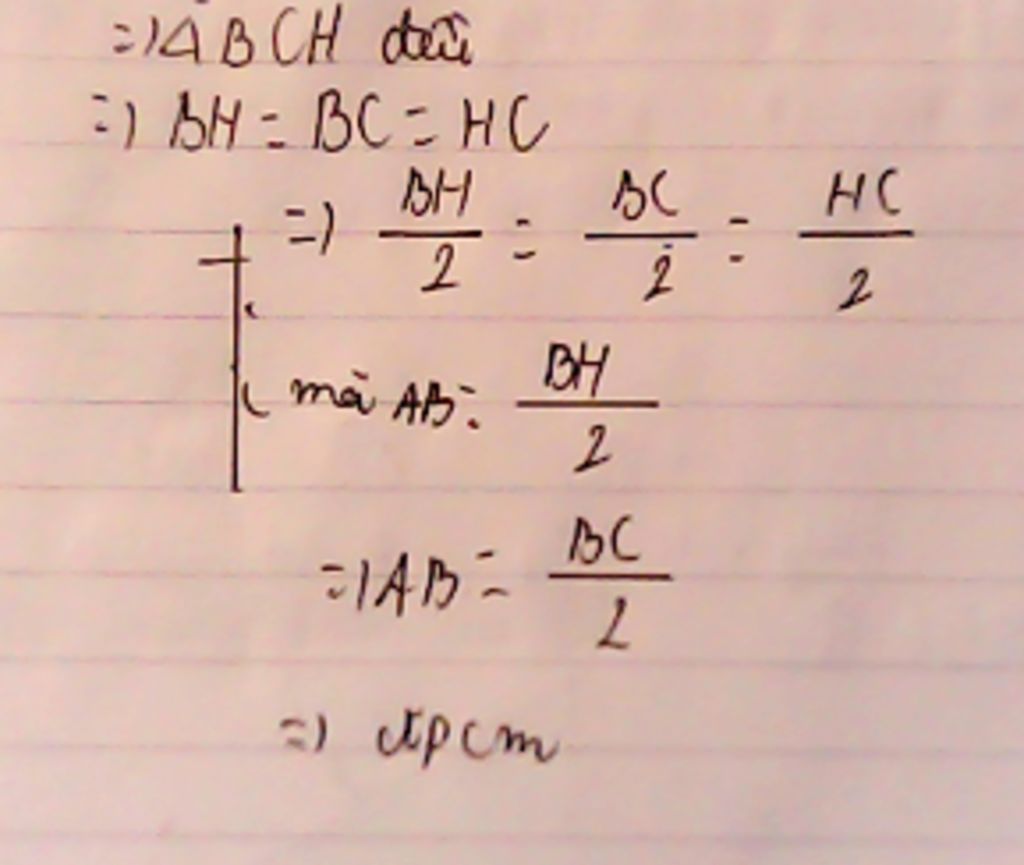 => Δ BCH đều
=> BH = BC = HC
=> BH/2 = BC/2 = HC/2
mà AB = BH/2
=> AB = BC/2
=> đpcm